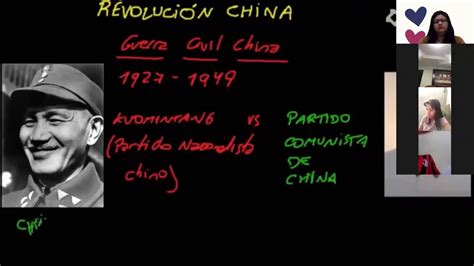 REVOLUCIÓN CHINA
Guerra Civil China
1927 - 1949
KUOMINTANG vs PARTIDO
(Partido Nacionalista COMUNISTA
chino) DE
CHINA